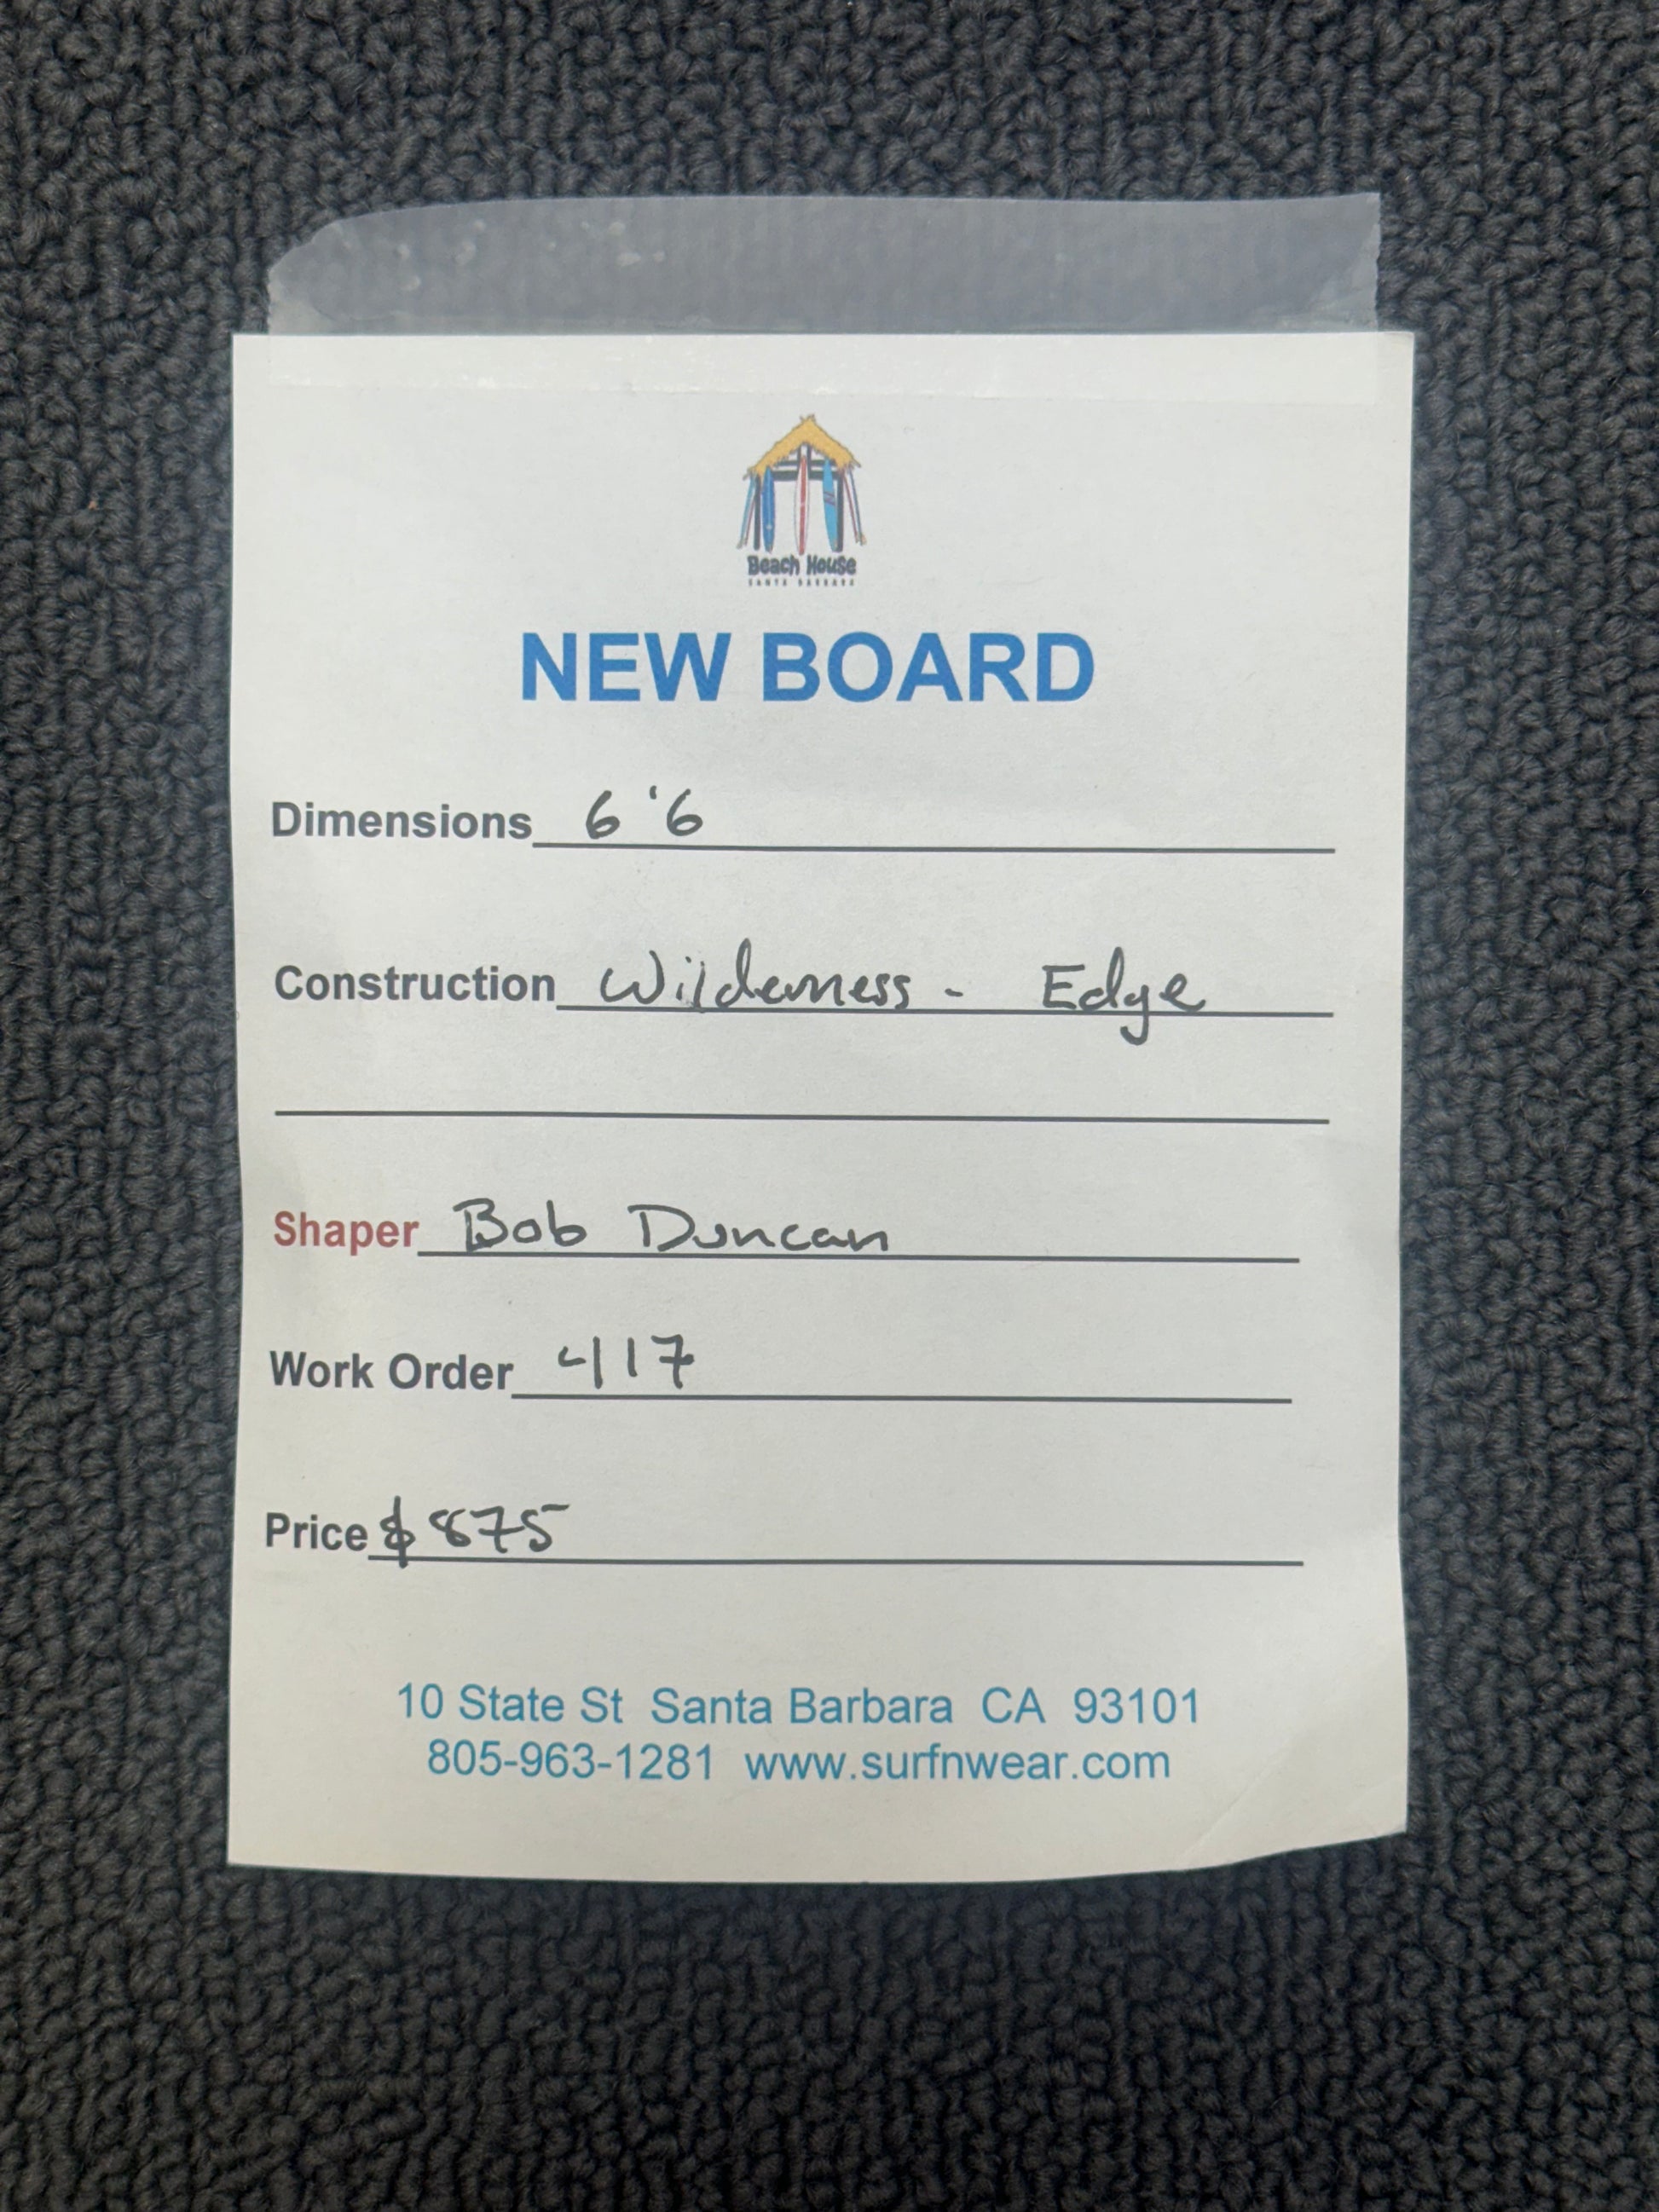 Beach House
SANTA BARBARA
NEW BOARD
Dimensions 6'6
Construction Wilderness - Edge
Shaper Bob Duncan
Work Order 417
Price $875
10 State St Santa Barbara CA 93101
805-963-1281 www.surfnwear.com